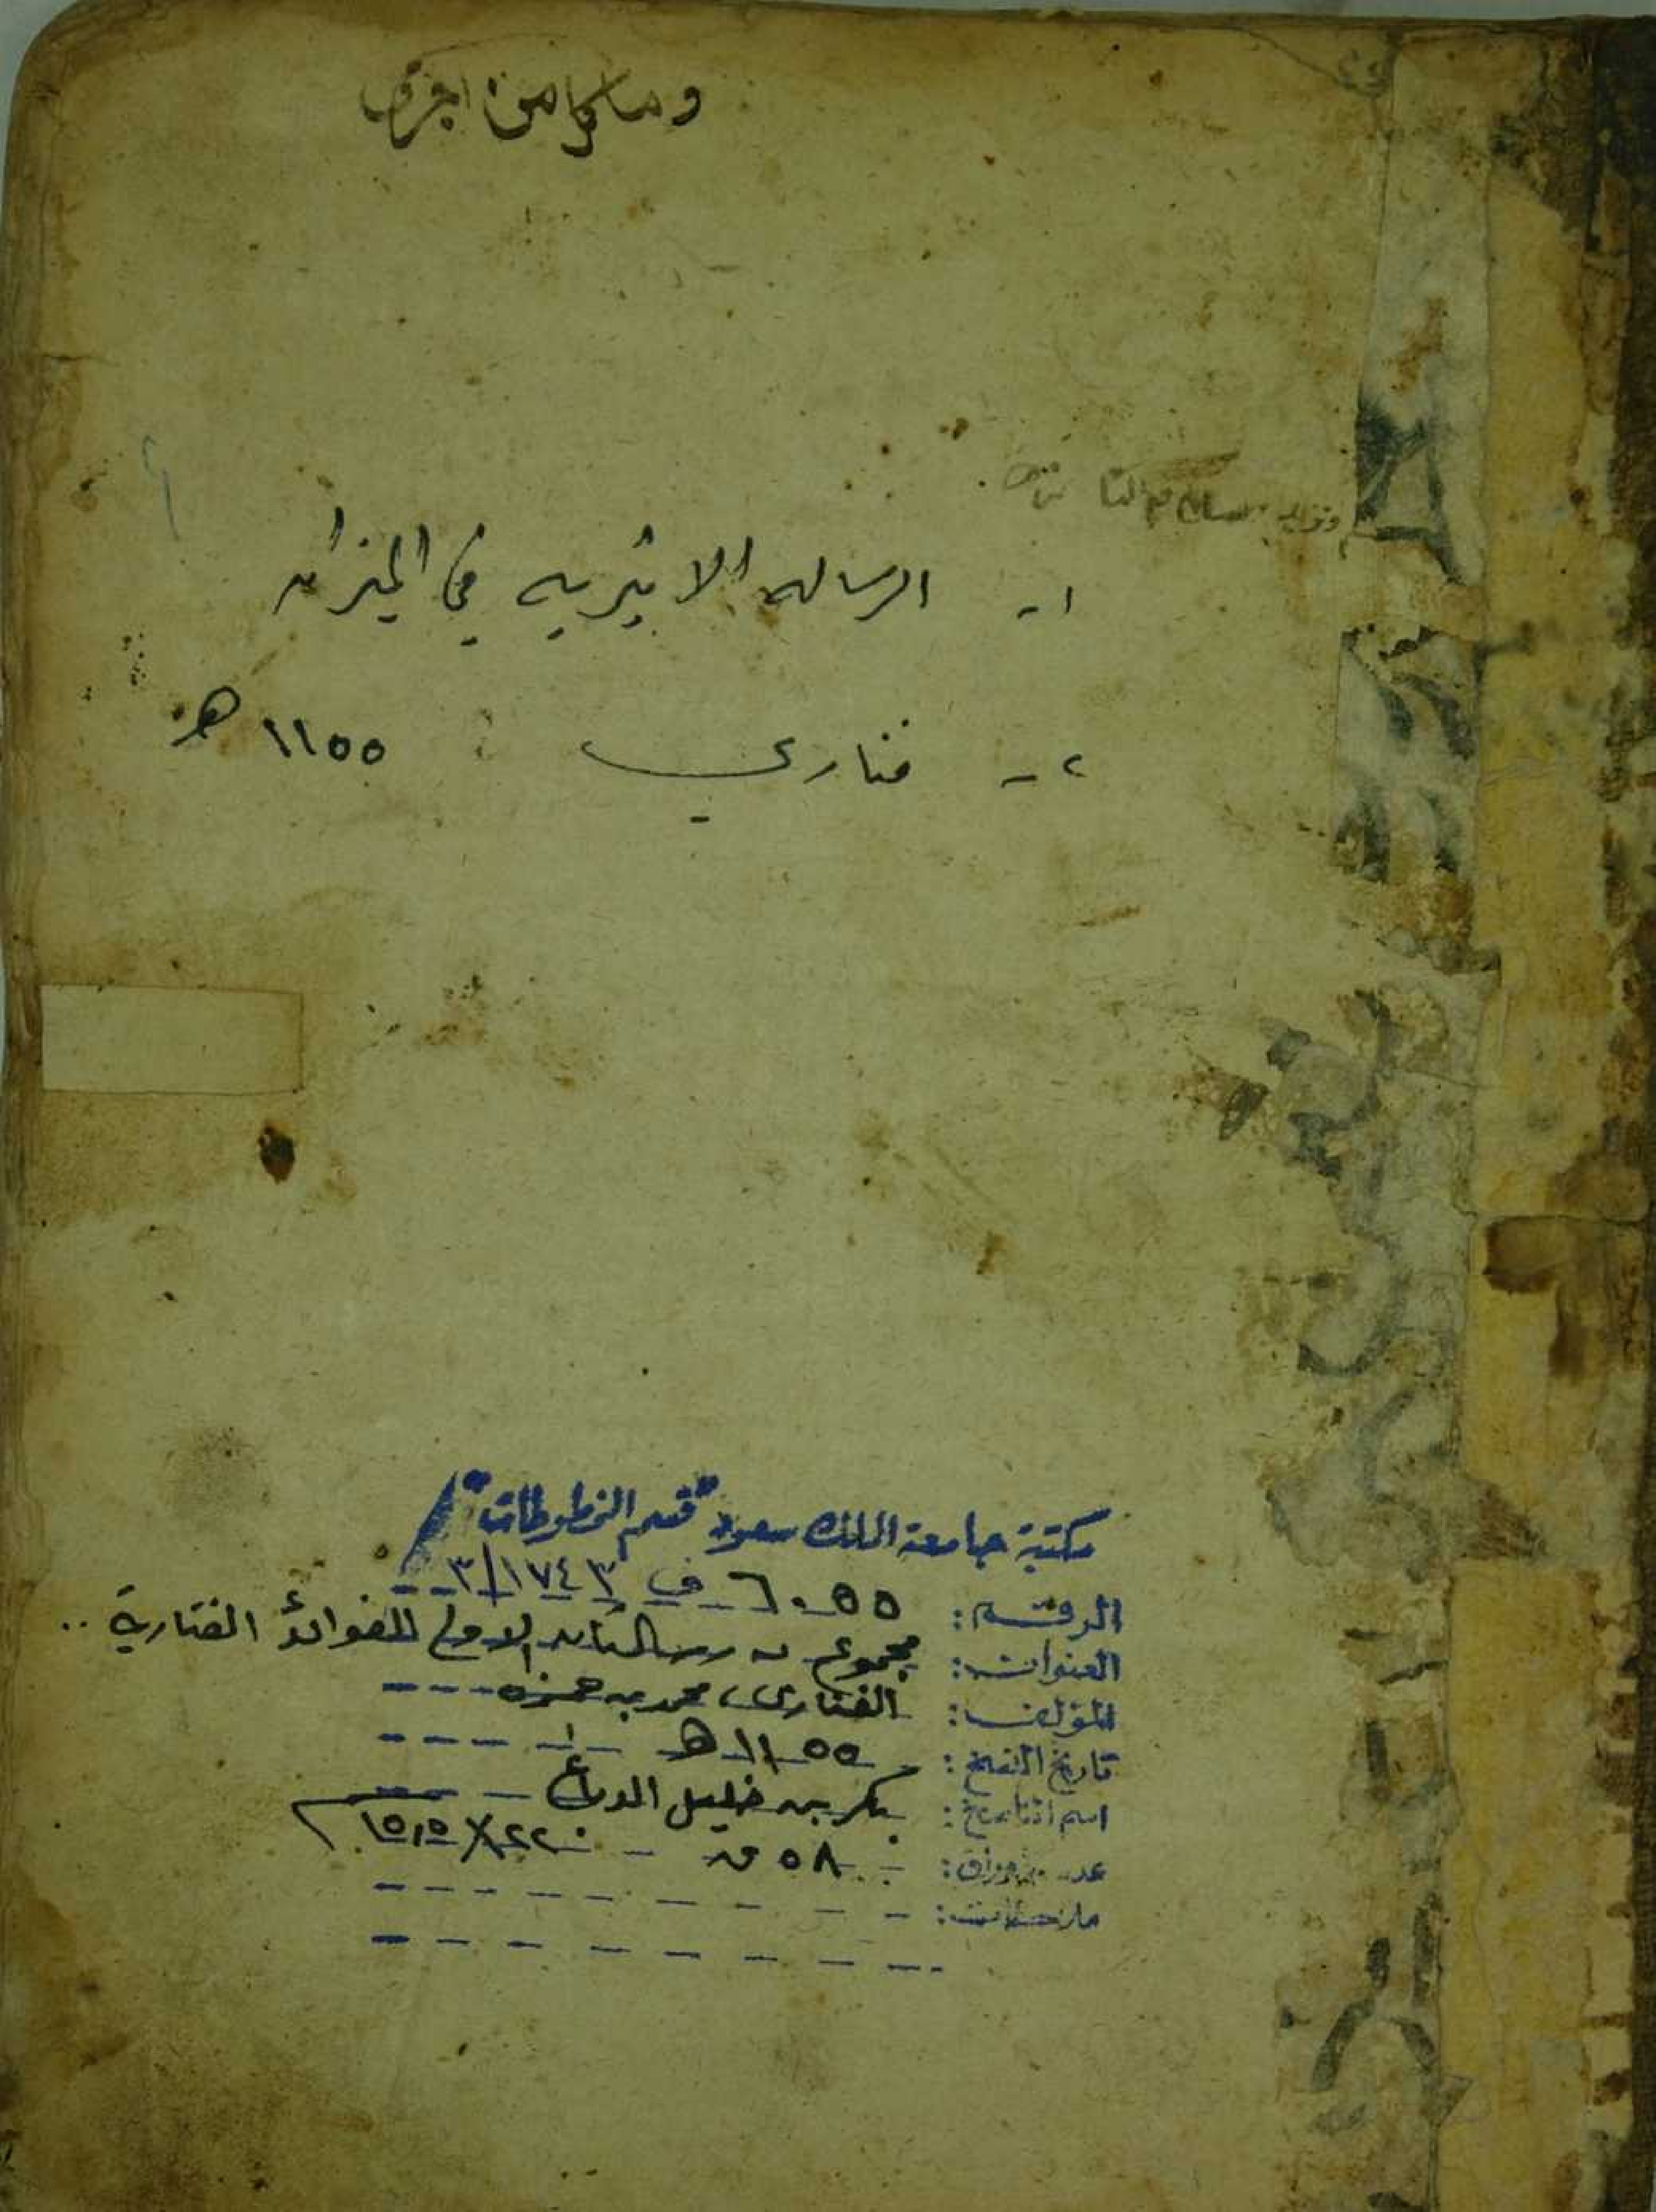 ١- الرساله الاثيريه في الميزان
٢- فناري ١١٥٥ هـ
مكتبة جامعة الملك سعود "قسم المخطوطات"
الرقم: ٦٠٥٥ ف ١٧٤٣/٣
العنوان: مجموع به رسالتان الاولى الفوائد الفنارية ..
المؤلف: الفناري، محمد بن حمزه
تاريخ النسخ: ١١٥٥ هـ
اسم الناسخ: بكر بن خليل
عدد الأوراق: ٥٨ ق ٢٢ × ١٥٫٥
ملاحظات: